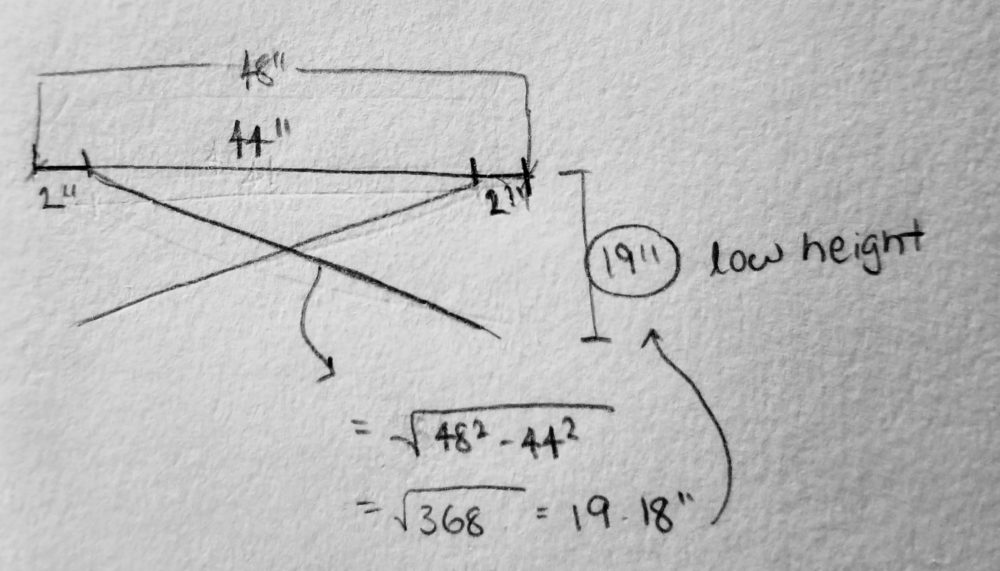 48"
44"
2" 2"
19" low height
= √48² - 44²
= √368 = 19.18"